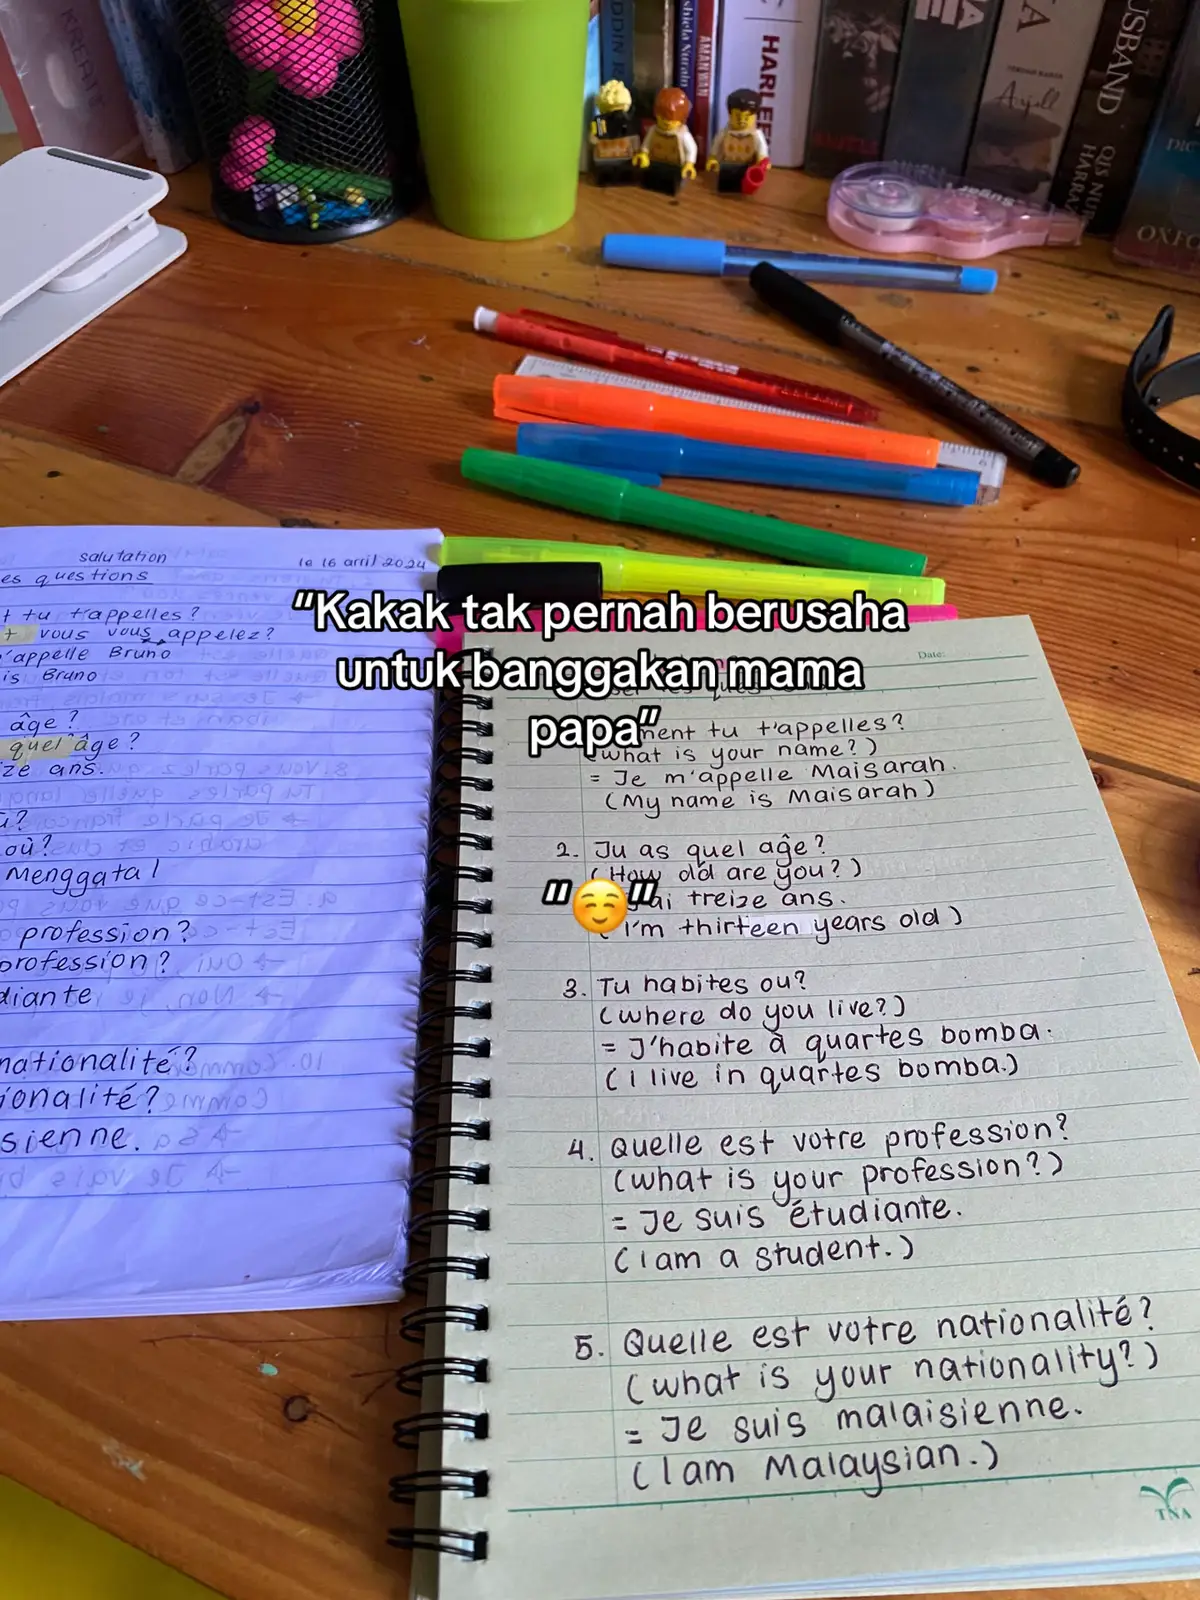 KREATT
DDIN
AMAN WAN
HARLEE
Anjell
USBAND
OH
HARRA
OXFO
Sugar
salutation
le 16 avril 2024
es questions
t tu t'appelles?
t vous vous appelez?
'appelle Bruno
is Bruno
âge?
quel âge?
ze ans.
où?
Menggatal
profession?
profession?
diante
nationalité?
ionalité?
sienne.
"Kakak tak pernah berusaha
untuk banggakan mama
papa"
"☺️"
Date:
ment tu t'appelles?
(what is your name?)
= Je m'appelle Maisarah.
(My name is Maisarah)
2. Ju as quel aĝe?
(How old are you?)
ai treize ans.
(I'm thirteen years old)
3. Tu habites ou?
(where do you live?)
= J'habite à quartes bomba.
(I live in quartes bomba.)
4. Quelle est votre profession?
(what is your profession?)
= Je suis étudiante.
(I am a student.)
5. Quelle est votre nationalité?
(what is your nationality?)
= Je suis malaisienne.
(I am Malaysian.)
TNA